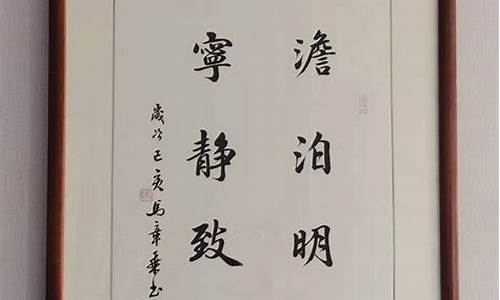 澹泊明
寧静致
歲次己亥馬章乘书